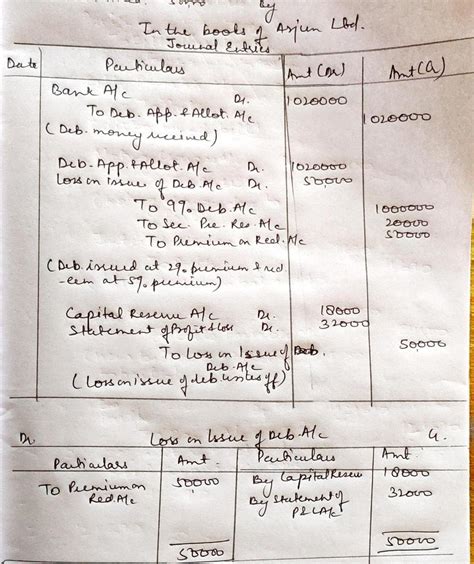 By
In the books of Arjun Ltd.
Journal Entries
Date Particulars Amt (Dr) Amt (Cr)
Bank A/c Dr. 1020000
To Deb. App. & Allot. A/c 1020000
(Deb. money received)
Deb. App. & Allot. A/c Dr. 1020000
Loss on issue of Deb. A/c Dr. 50000
To 9% Deb. A/c 1000000
To Sec. Pre. Res. A/c 20000
To Premium on Red. A/c 50000
(Deb. issued at 2% premium & red
-eem at 5% premium)
Capital Reserve A/c Dr. 18000
Statement of Profit & Loss Dr. 32000
To Loss on Issue of Deb. 50,000
Deb. A/c
(Loss on issue of deb written off)
Dr. Loss on Issue of Deb. A/c Cr.
Particulars Amt. Particulars Amt.
To Premium on 50000 By Capital Reserve 18000
Red. A/c By Statement of 32000
P&L A/c
50000 50000